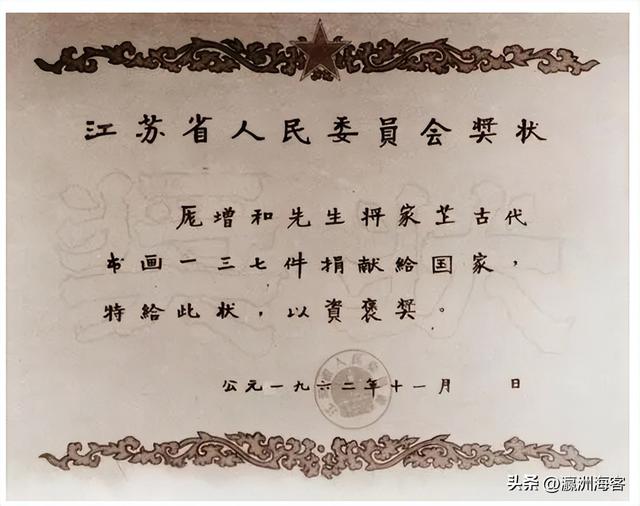 江苏省人民委員会奬状
庞增和先生将家芷古代
书画一三七件捐献給国家，
特給此状，以資褒奬。
公元一九六二年十一月 日
头条 @瀛洲海客